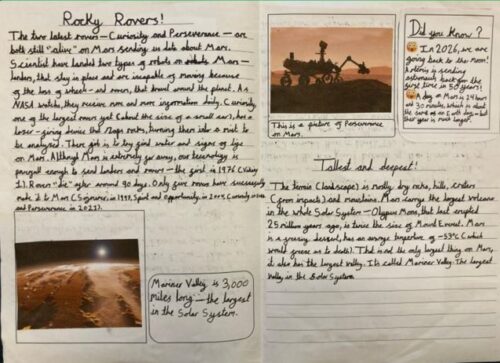 Rocky Rovers!
The two latest rovers – Curiosity and Perseverance – are
both still "alive" on Mars sending us data about Mars.
Scientists have landed two types of robots on Mars –
landers, that stay in place and are incapable of moving because
of the loss of wheels – and rovers, that travel around the planet. As
NASA watch, they receive more and more information daily. Curiosity,
one of the largest rovers yet (about the size of a small car), has a
laser-giving device that zaps rocks, turning them into a mist to
be analysed. There job is to try find water and signs of life
on Mars. Although Mars is extremely far away, our technology is
powerful enough to send landers and rovers – the first, in 1976 (Viking
1). Rovers "die" after around 90 days. Only five rovers have successfully
made it to Mars (Sojourner, in 1997, Spirit and Opportunity, in 2004, Curiosity in
and Perseverance in 2021).
Mariner Valley is 3,000
miles long – the largest
in the Solar System.
This is a picture of Perseverance
on Mars.
Did you Know?
In 2026, we are
going back to the Moon!
is sending
astronauts back for the
first time in 50 years!
A day on Mars is 24 hours
and 30 minutes, which is about
the same as an Earth day – but
their year is much longer.
Tallest and deepest!
The terrain (landscape) is mostly dry rocks, hills, craters
(from impacts) and mountains. Mars carrys the largest volcano
in the whole Solar System – Olypus Mons, that last erupted
25 million years ago, is twice the size of Mount Everest. Mars
is a freezing desert, has an average temperture of -53°C (which
would freeze us to death). That is not the only largest thing on Mars,
it also has the largest valley. It's called Mariner Valley. The largest
Valley in the Solar System.